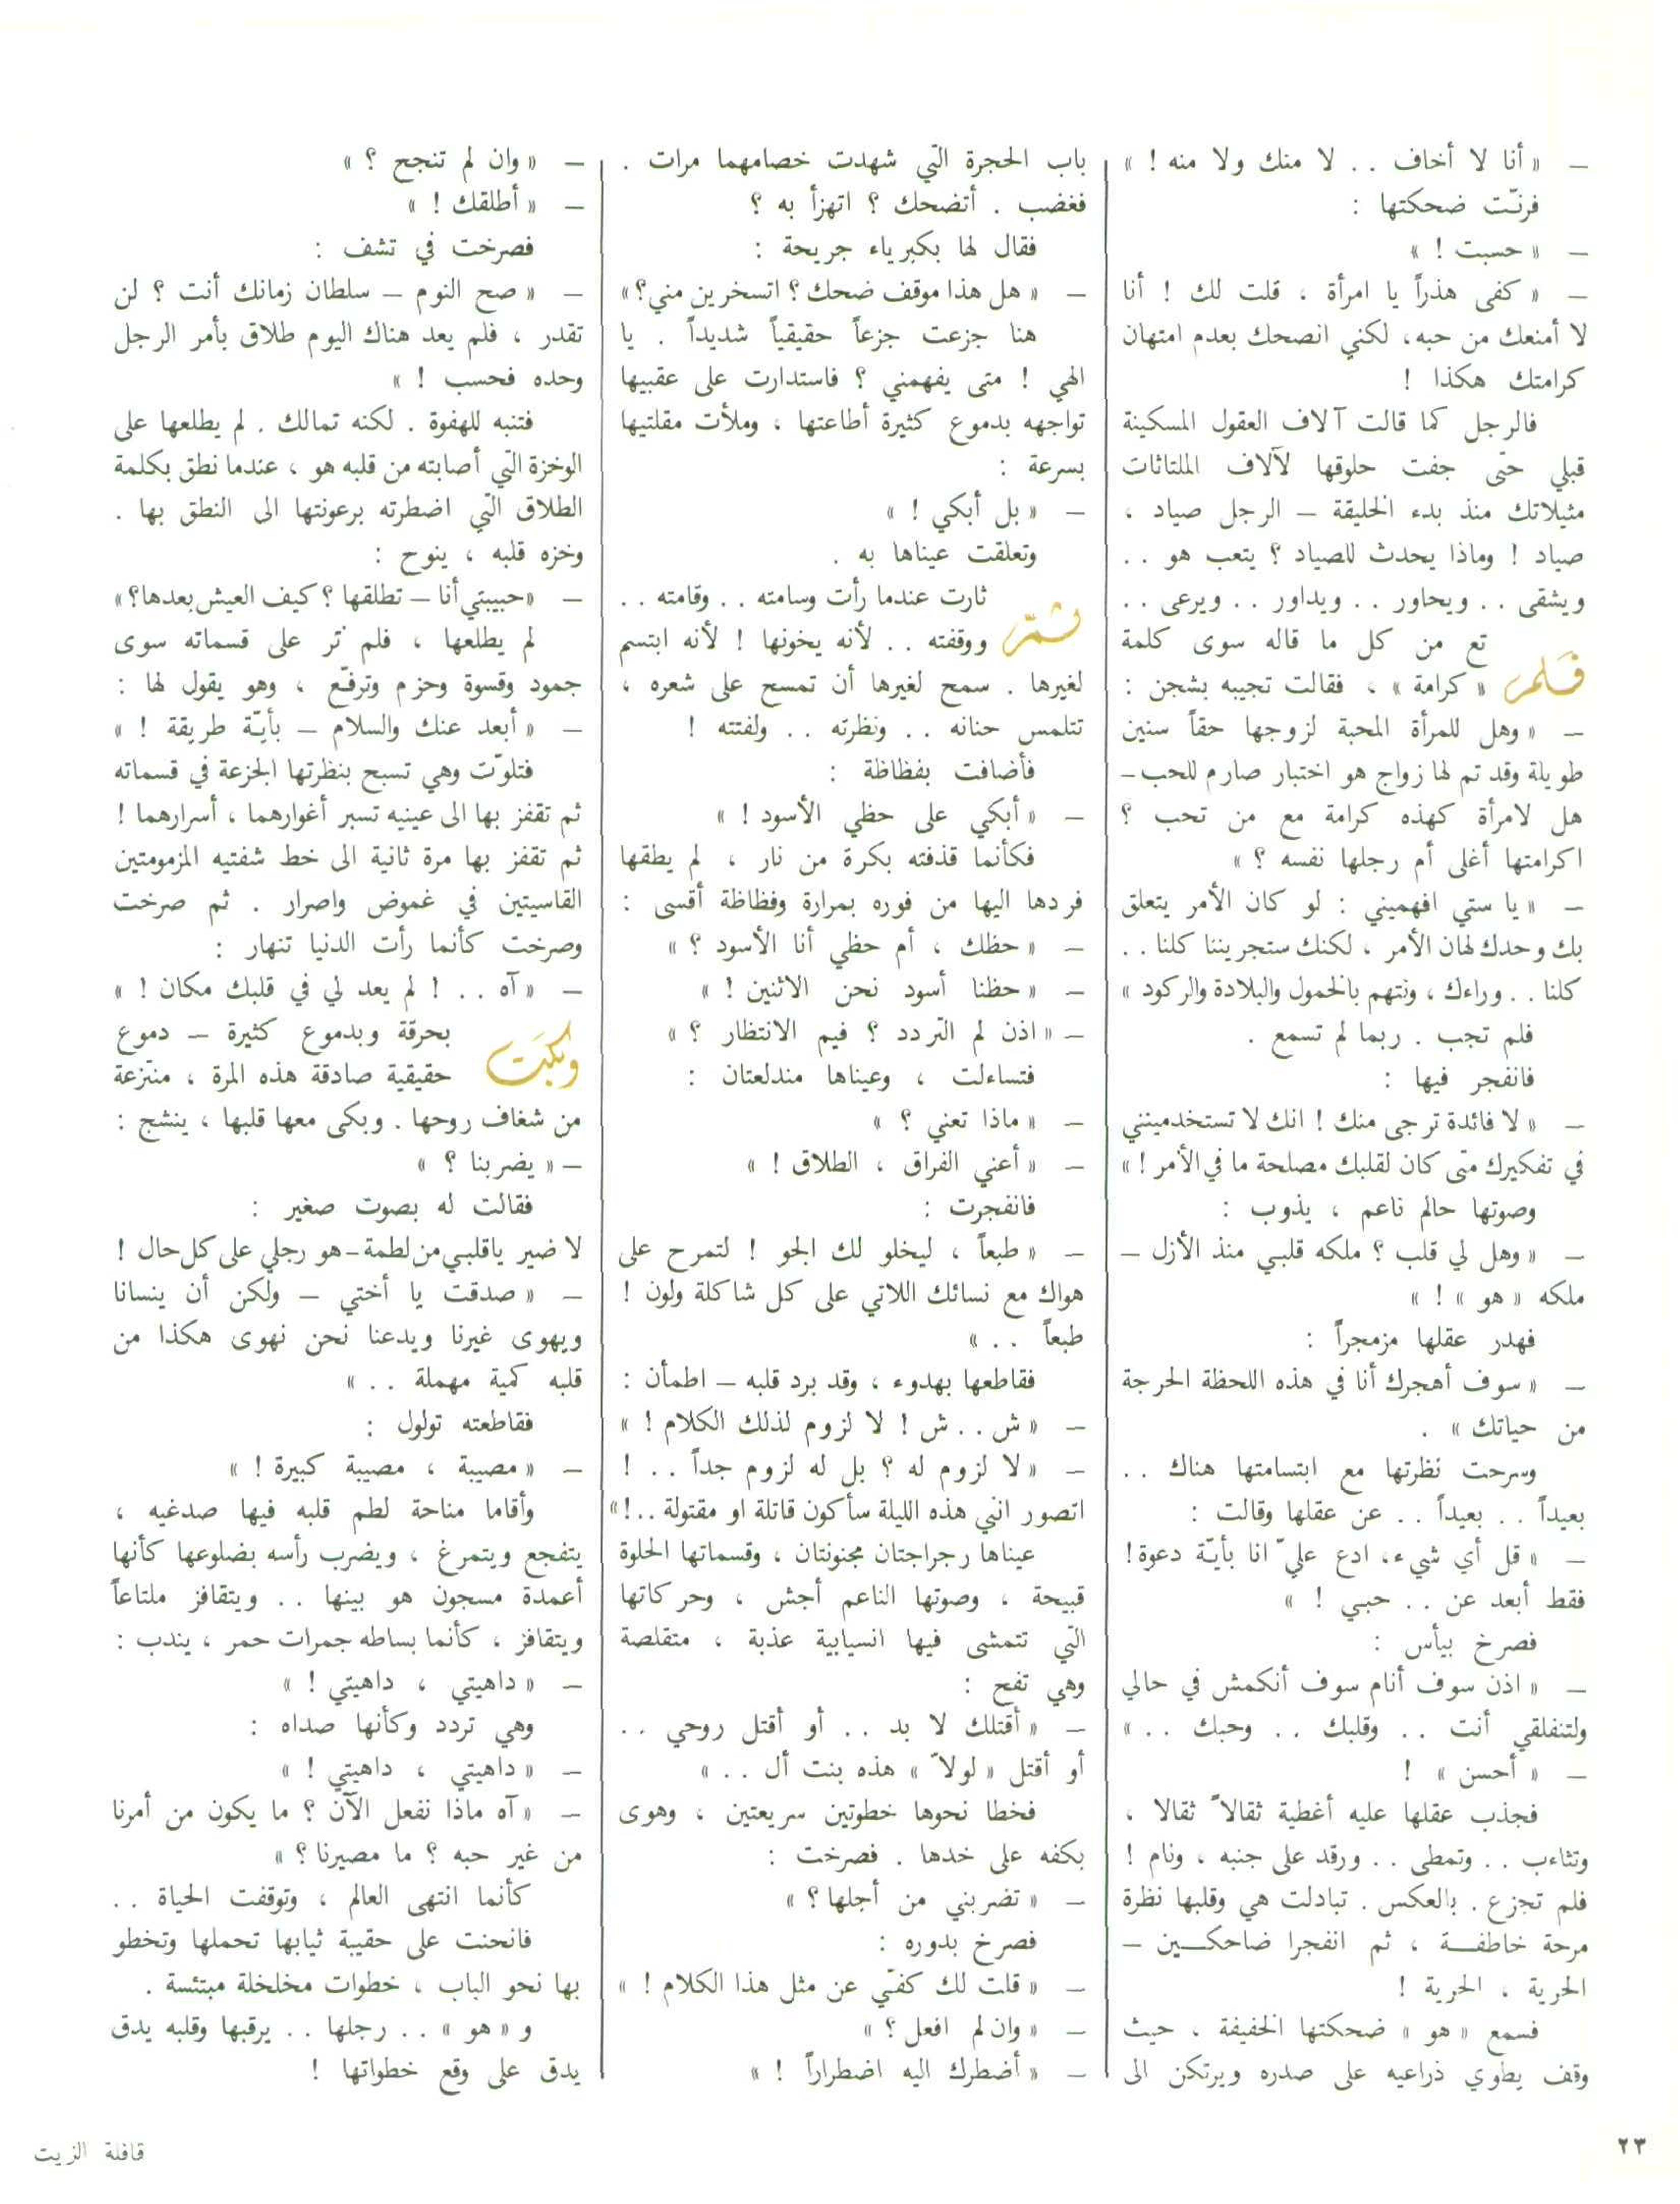 — « أنا لا أخاف . . لا منك ولا منه ! »
فرنّت ضحكتها :
— « حسبت ! »
— « كفى هذراً يا امرأة ، قلت لك ! أنا
لا أمنعك من حبه، لكني انصحك بعدم امتهان
كرامتك هكذا !
فالرجل كما قالت آلاف العقول المسكينة
قبلي حتى جفت حلوقها لآلاف الملتاثات
مثيلاتك منذ بدء الخليقة — الرجل صياد ،
صياد ! وماذا يحدث للصياد ؟ يتعب هو . .
ويشقى . . ويحاور . . ويداور . . ويرعى . .
فَلم تع من كل ما قاله سوى كلمة
« كرامة » ، فقالت تجيبه بشجن :
— « وهل للمرأة المحبة لزوجها حقاً سنين
طويلة وقد تم لها زواج هو اختبار صارم للحب—
هل لامرأة كهذه كرامة مع من تحب ؟
اكرامتها أغلى أم رجلها نفسه ؟ »
— « يا ستي افهميني : لو كان الأمر يتعلق
بك وحدك لهان الأمر ، لكنك ستجريننا كلنا . .
كلنا . . وراءك ، ونتهم بالخمول والبلادة والركود »
فلم تجب . ربما لم تسمع .
فانفجر فيها :
— « لا فائدة ترجى منك ! انك لا تستخدمينني
في تفكيرك متى كان لقلبك مصلحة ما في الأمر ! »
وصوتها حالم ناعم ، يذوب :
— « وهل لي قلب ؟ ملكه قلبي منذ الأزل —
ملكه « هو » ! »
فهدر عقلها مزمجراً :
— « سوف أهجرك أنا في هذه اللحظة الحرجة
من حياتك » .
وسرحت نظرتها مع ابتسامتها هناك . .
بعيداً . . بعيداً . . عن عقلها وقالت :
— « قل أي شيء، ادع عليّ انا بأيّة دعوة !
فقط أبعد عن . . حبي ! »
فصرخ بيأس :
— « اذن سوف أنام سوف أنكمش في حالي
ولتنفلقي أنت . . وقلبك . . وحبك . . »
— « أحسن » !
فجذب عقلها عليه أغطية ثقالاً ثقالا ،
وتثاءب . . وتمطى . . ورقد على جنبه ، ونام !
فلم تجزع . بالعكس . تبادلت هي وقلبها نظرة
مرحة خاطفـة ، ثم انفجرا ضاحكـين —
الحرية ، الحرية !
فسمع « هو » ضحكتها الخفيفة ، حيث
وقف يطوي ذراعيه على صدره ويرتكن الى
باب الحجرة التي شهدت خصامهما مرات .
فغضب . أتضحك ؟ اتهزأ به ؟
فقال لها بكبرياء جريحة :
— « هل هذا موقف ضحك ؟ اتسخرين مني؟ »
هنا جزعت جزعاً حقيقياً شديداً . يا
الهي ! متى يفهمني ؟ فاستدارت على عقبيها
تواجهه بدموع كثيرة أطاعتها ، وملأت مقلتيها
بسرعة :
— « بل أبكي ! »
وتعلقت عيناها به .
ثمّ ثارت عندما رأت وسامته . . وقامته . .
ووقفته . . لأنه يخونها ! لأنه ابتسم
لغيرها . سمح لغيرها أن تمسح على شعره ،
تتلمس حنانه . . ونظرته . . ولفتته !
فأضافت بفظاظة :
— « أبكي على حظي الأسود ! »
فكأنما قذفته بكرة من نار ، لم يطقها
فردها اليها من فوره بمرارة وفظاظة أقسى :
— « حظك ، أم حظي أنا الأسود ؟ »
— « حظنا أسود نحن الاثنين ! »
— « اذن لم التردد ؟ فيم الانتظار ؟ »
فتساءلت ، وعيناها مندلعتان :
— « ماذا تعني ؟ »
— « أعني الفراق ، الطلاق ! »
فانفجرت :
— « طبعاً ، ليخلو لك الجو ! لتمرح على
هواك مع نسائك اللاتي على كل شاكلة ولون !
طبعاً . . »
فقاطعها بهدوء ، وقد برد قلبه — اطمأن :
— « ش . . ش ! لا لزوم لذلك الكلام ! »
— « لا لزوم له ؟ بل له لزوم جداً . . !
اتصور انني هذه الليلة سأكون قاتلة او مقتولة ..! »
عيناها رجراجتان مجنونتان ، وقسماتها الحلوة
قبيحة ، وصوتها الناعم أجش ، وحركاتها
التي تتمشى فيها انسيابية عذبة ، متقلصة
وهي تفح :
— « أقتلك لا بد . . أو أقتل روحي . .
أو أقتل « لولا » هذه بنت أل . . »
فخطا نحوها خطوتين سريعتين ، وهوى
بكفه على خدها . فصرخت :
— « تضربني من أجلها ؟ »
فصرخ بدوره :
— « قلت لك كفّي عن مثل هذا الكلام ! »
— « وان لم افعل ؟ »
— « أضطرك اليه اضطراراً ! »
— « وان لم تنجح ؟ »
— « أطلقك ! »
فصرخت في تشف :
— « صح النوم — سلطان زمانك أنت ؟ لن
تقدر ، فلم يعد هناك اليوم طلاق بأمر الرجل
وحده فحسب ! »
فتنبه للهفوة . لكنه تمالك . لم يطلعها على
الوخزة التي أصابته من قلبه هو ، عندما نطق بكلمة
الطلاق التي اضطرته برعونتها الى النطق بها .
وخزه قلبه ، ينوح :
— « حبيبتي أنا — تطلقها ؟ كيف العيش بعدها؟ »
لم يطلعها ، فلم تر على قسماته سوى
جمود وقسوة وحزم وترفّع ، وهو يقول لها :
— « أبعد عنك والسلام — بأيّة طريقة ! »
فتلوّت وهي تسبح بنظرتها الجزعة في قسماته
ثم تقفز بها الى عينيه تسبر أغوارهما ، أسرارهما !
ثم تقفز بها مرة ثانية الى خط شفتيه المزمومتين
القاسيتين في غموض واصرار . ثم صرخت
وصرخت كأنما رأت الدنيا تنهار :
— « آه . . ! لم يعد لي في قلبك مكان ! »
وَبكَت بحرقة وبدموع كثيرة — دموع
حقيقية صادقة هذه المرة ، منتزعة
من شغاف روحها . وبكى معها قلبها ، ينشج :
— « يضربنا ؟ »
فقالت له بصوت صغير :
لا ضير ياقلبي من لطمة — هو رجلي على كل حال !
— « صدقت يا أختي — ولكن أن ينسانا
ويهوى غيرنا ويدعنا نحن نهوى هكذا من
قلبه كمية مهملة . . »
فقاطعته تولول :
— « مصيبة ، مصيبة كبيرة ! »
وأقاما مناحة لطم قلبه فيها صدغيه ،
يتفجع ويتمرغ ، ويضرب رأسه بضلوعها كأنها
أعمدة مسجون هو بينها . . ويتقافز ملتاعاً
ويتقافز ، كأنما بساطه جمرات حمر ، يندب :
— « داهيتي ، داهيتي ! »
وهي تردد وكأنها صداه :
— « داهيتي ، داهيتي ! »
— « آه ماذا نفعل الآن ؟ ما يكون من أمرنا
من غير حبه ؟ ما مصيرنا ؟ »
كأنما انتهى العالم ، وتوقفت الحياة . .
فانحنت على حقيبة ثيابها تحملها وتخطو
بها نحو الباب ، خطوات مخلخلة مبتئسة .
و « هو » . . رجلها . . يرقبها وقلبه يدق
يدق على وقع خطواتها !
٢٣
قافلة الزيت